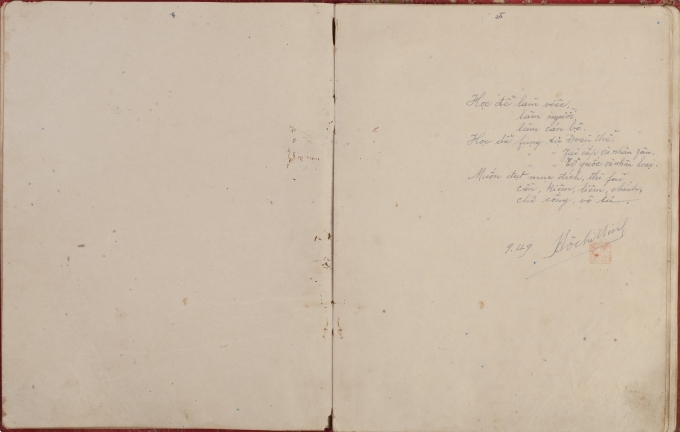 Học để làm việc,
làm người,
làm cán bộ.
Học để fụng sự Đoàn thể.
" jai cấp và nhân zân,
" Tổ quốc và nhân loại.
Muốn đạt mục đích, thì fải
cần, kiệm, liêm, chính,
chí công, vô tư.
9.49 Hồ Chí Minh